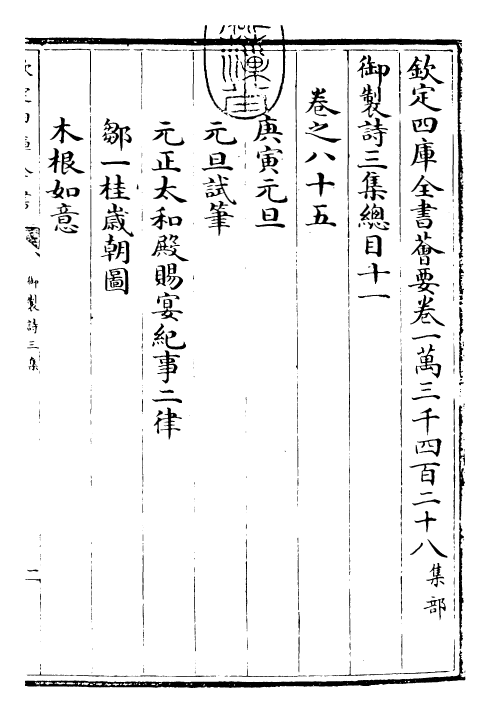 欽定四庫全書薈要卷一萬三千四百二十八 集部
御製詩三集總目十一
卷之八十五
庚寅元旦
元旦試筆
元正太和殿賜宴紀事二律
鄒一桂歲朝圖
木根如意
御製詩三集
一